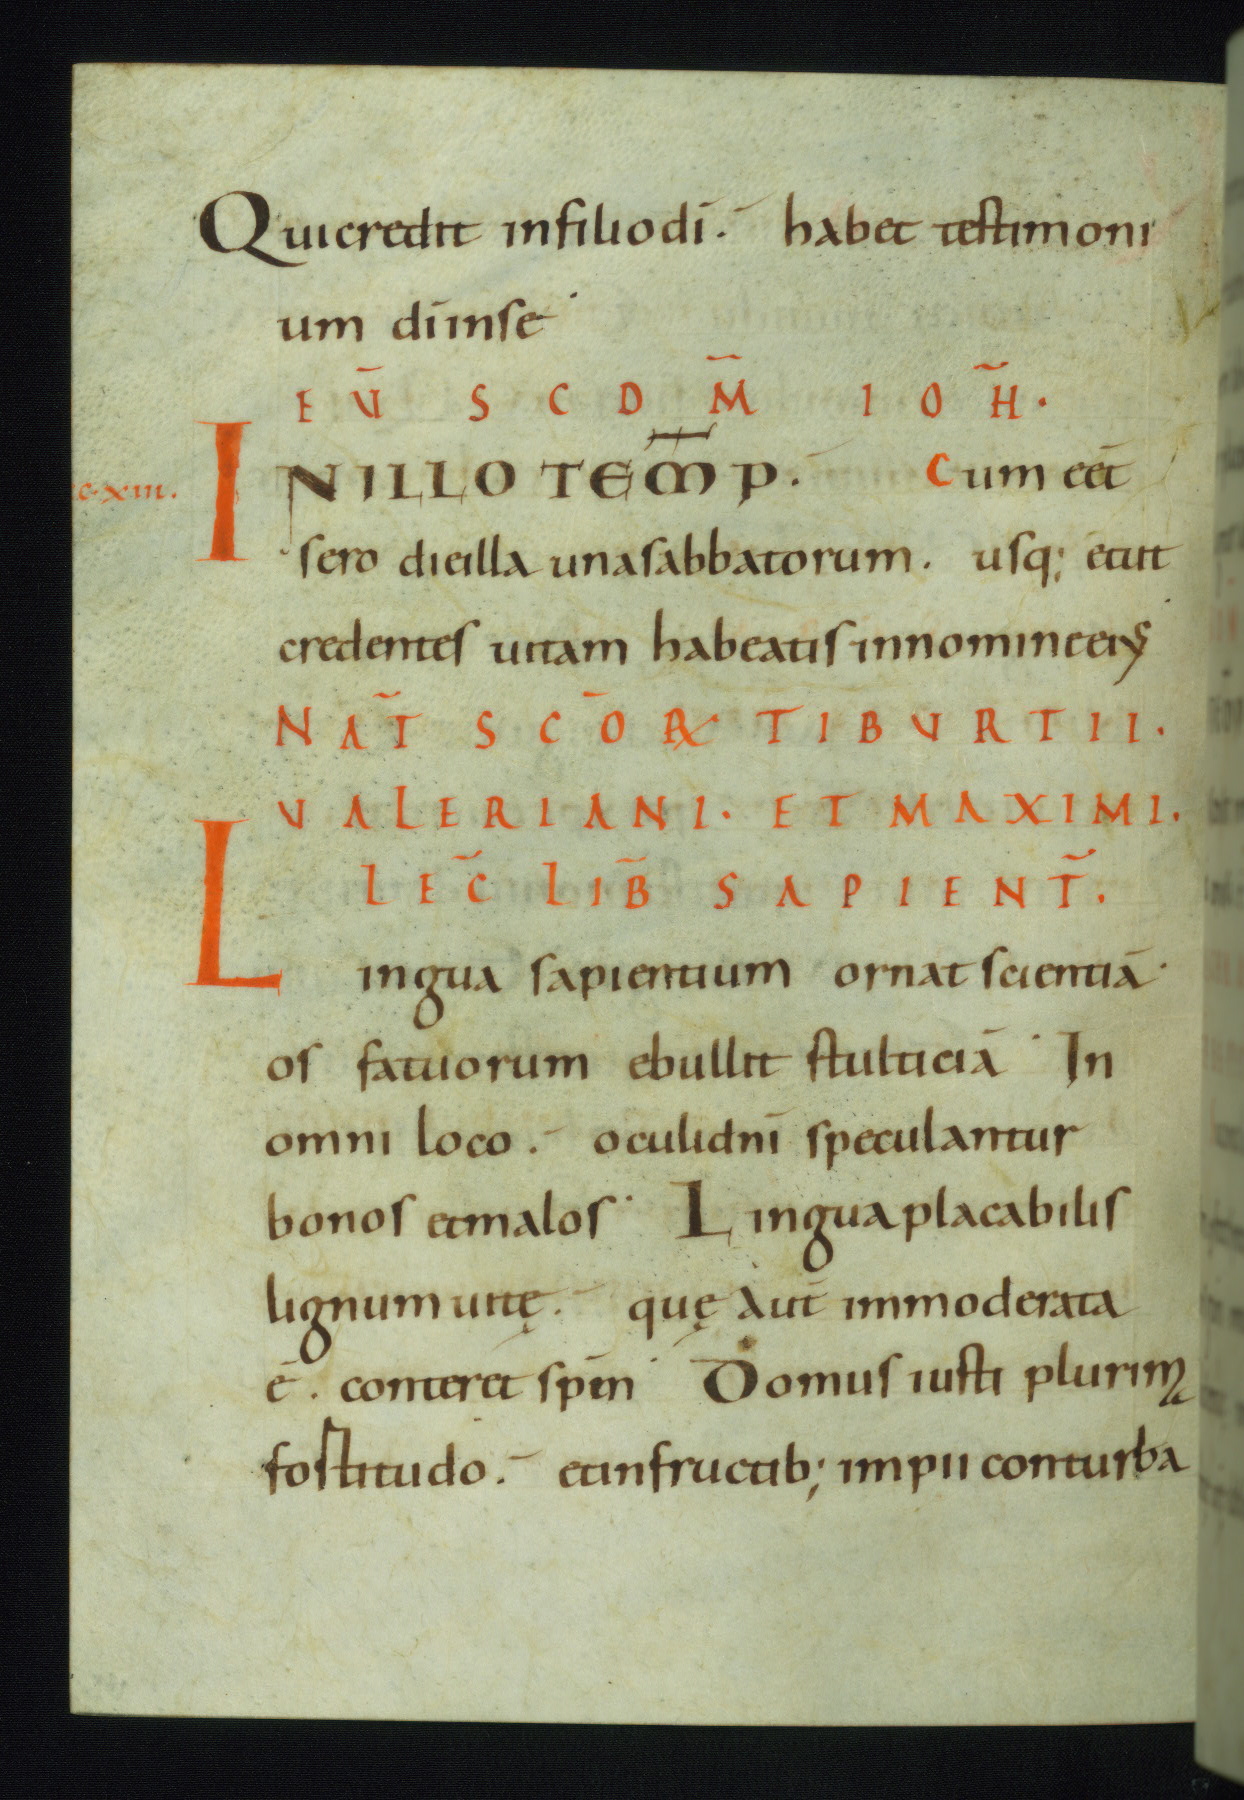 Qui credit in filio dī. habet testimoni
um dī in se
EṼ SCDM̃ IOH̃.
c. xiii.
IN ILLO TEM̄P. Cum eēt
sero die illa una sabbatorum. usq; et ut
credentes uitam habeatis in nomine eiꝰ
NAT̃ SCŌꝜ TIBURTII.
VALERIANI. ET MAXIMI.
LEC̃ LIB̃ SAPIENT̃.
Lingua sapientium ornat scientiā
os fatuorum ebullit stulticiā In
omni loco. oculi dnī speculantur
bonos et malos Lingua placabilis
lignum uitę. quę aut̄ immoderata
ē. conteret sp̄m Domus iusti plurim
fostitudo. et in fructib; impii conturba